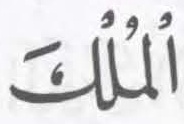 الْمُلْكَ